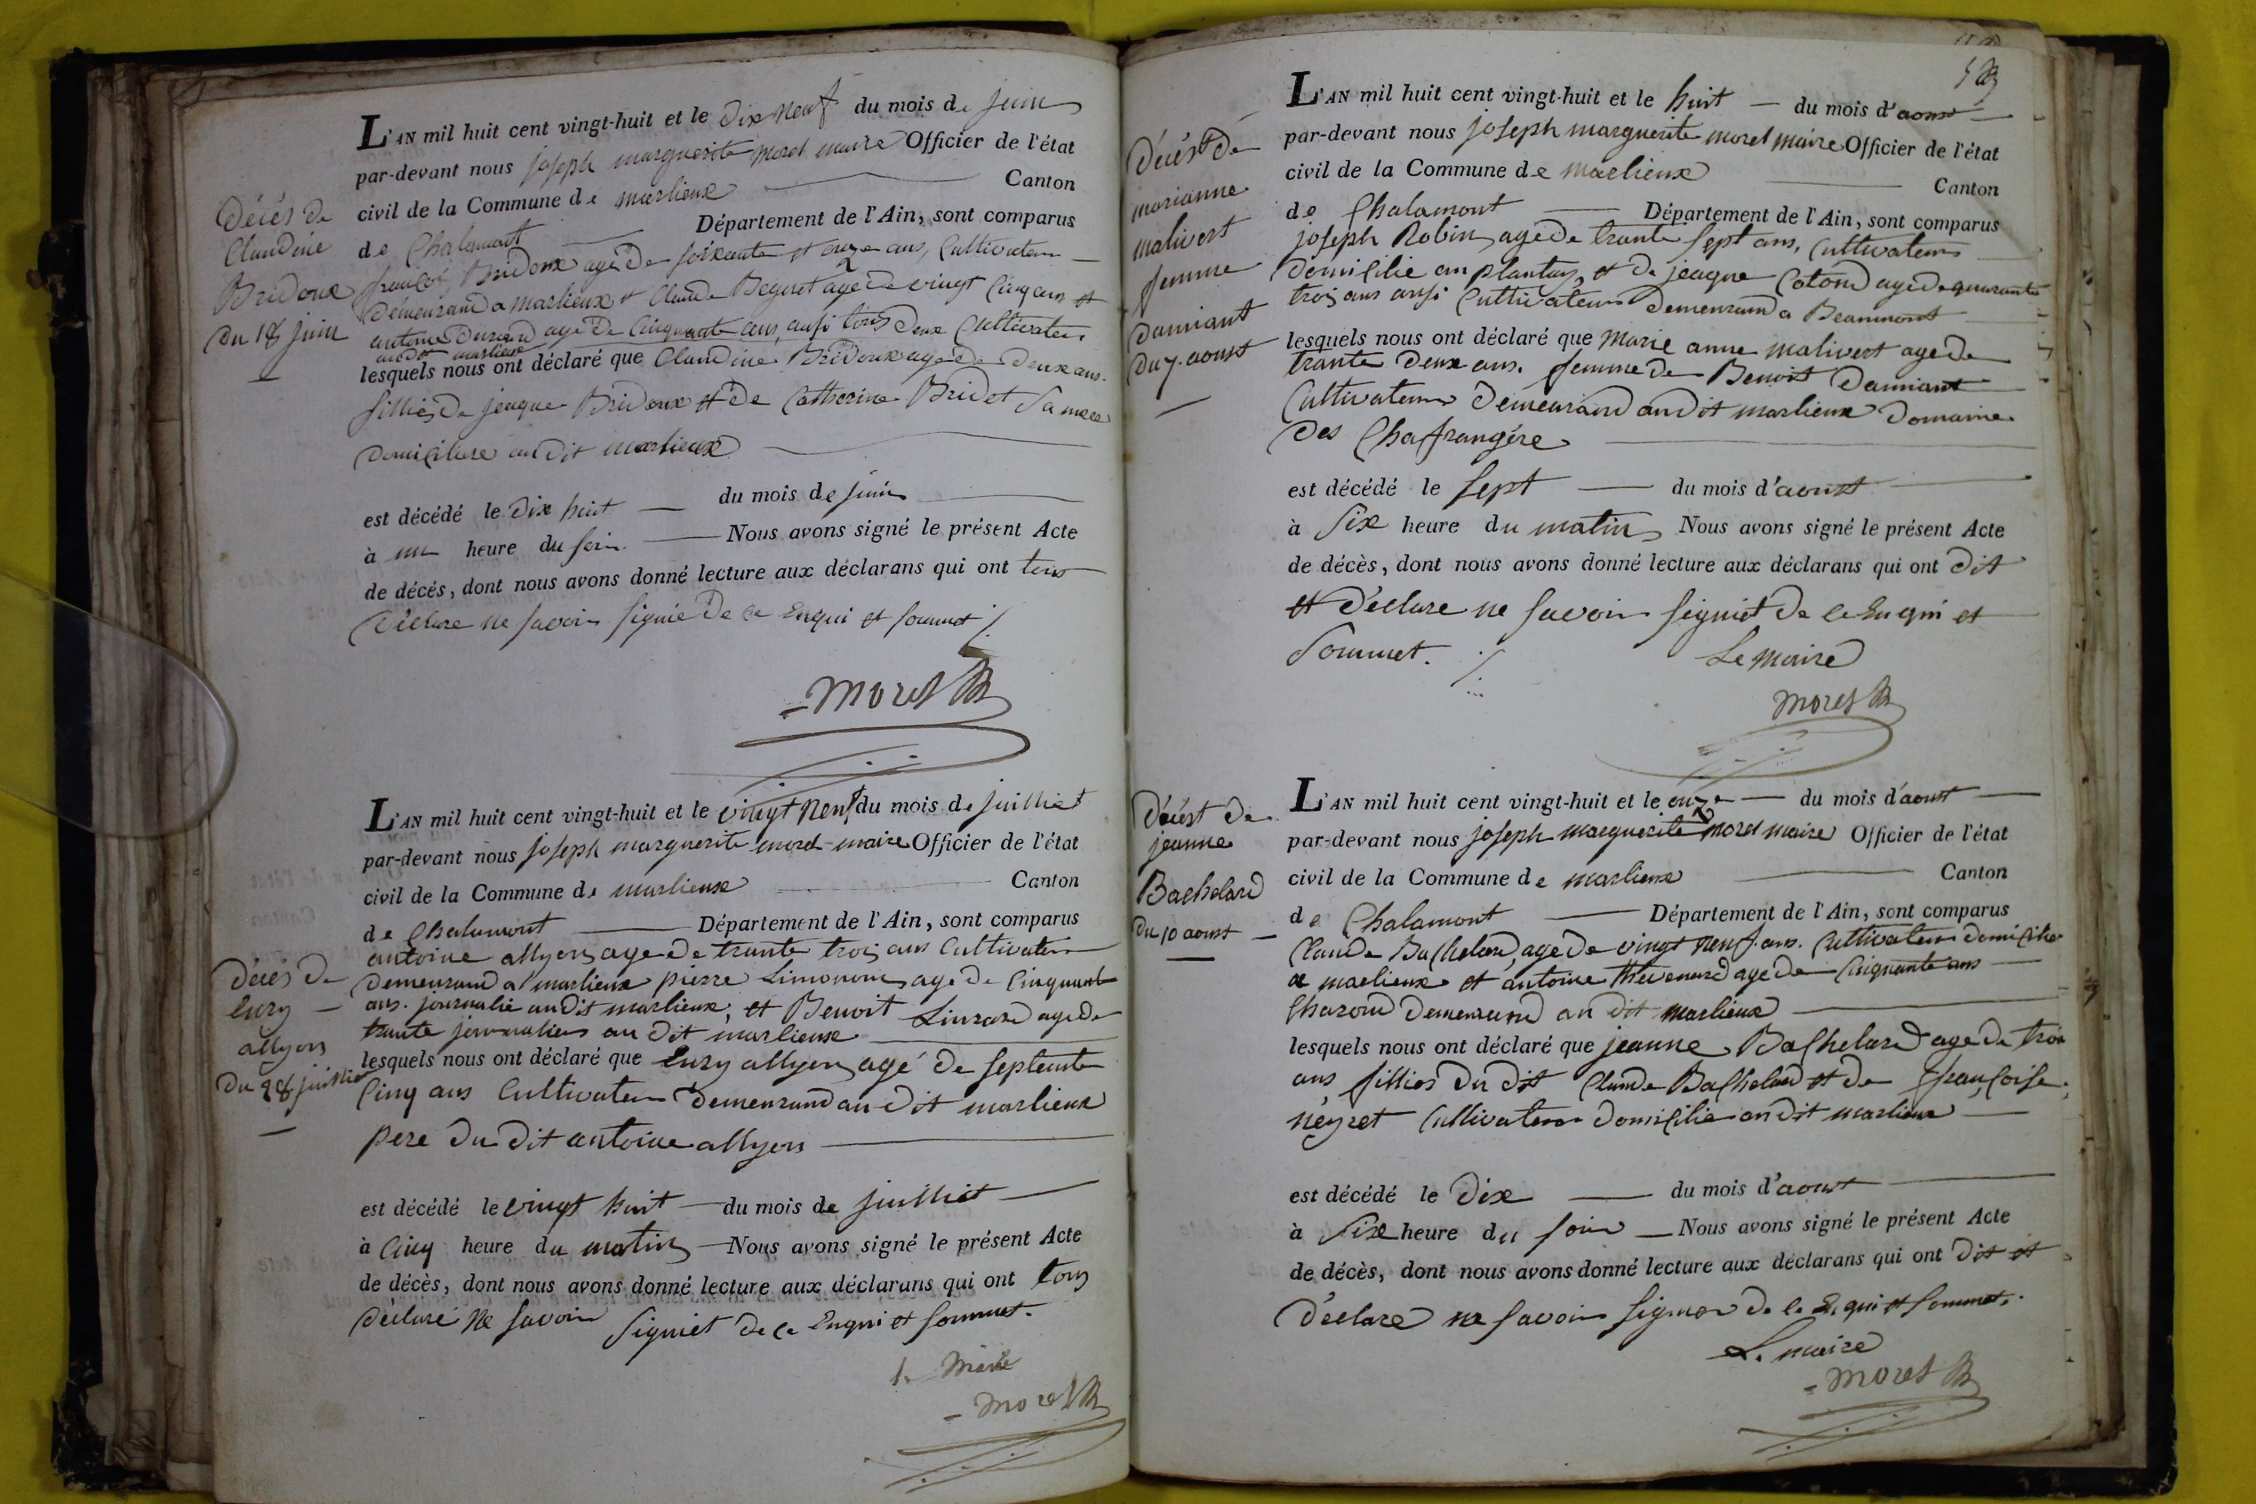 Décés de
Claudine
Bridoux
du 18 juin
L'AN mil huit cent vingt-huit et le dix neuf du mois de juin
par-devant nous joseph marguerite morel maire Officier de l'état
civil de la Commune de marlieux Canton
de Chalamont Département de l'Ain, sont comparus
françois Bridoux agé de soixante et onze ans, Cultivateur
demeurand a marlieux et Claude Beguet agé de vingt Cinq ans et
antoine Durand agé de Cinquante ans, ausi tous deux Cultivateur
audit marlieux
lesquels nous ont déclaré que Claudine Bridoux agé de deux ans
fillies de jeaque Bridoux et de Catherine Bridet sa mere
domiciliere au dit marlieux
est décédé le dix huit du mois de juin
à un heure du soir. Nous avons signé le présent Acte
de décés, dont nous avons donné lecture aux déclarans qui ont tous
déclare ne savoir signié de ce Enqui et sommet
morel
Décés de
Enzy
allyon
du 28 juilliet
L'AN mil huit cent vingt-huit et le vingt neuf du mois de juilliet
par-devant nous joseph marguerite morel maire Officier de l'état
civil de la Commune de marlieux Canton
de Chalamont Département de l'Ain, sont comparus
antoine allyon age de trante trois ans Cultivateur
demeurand a marlieux pierre Limonon age de Cinquant
ans. journalie au dit marlieux, et Benoit Livrard age de
trante journalier au dit marlieux
lesquels nous ont déclaré que Enzy allyon agé de septente
Cinq ans Cultivateur demeurand au dit marlieux
pere du dit antoine allyon
est décédé le vingt huit du mois de juilliet
à Cinq heure du matin Nous avons signé le présent Acte
de décès, dont nous avons donné lecture aux déclarans qui ont tous
déclaré ne savoir signiet de ce Enqui et sommet.
le Maire
morel
Décést de
marianne
malivert
femme
damiant
du 7. aoust
L'AN mil huit cent vingt-huit et le huit du mois d'aoust
par-devant nous joseph marguerite morel maire Officier de l'état
civil de la Commune de marlieux Canton
de Chalamont Département de l'Ain, sont comparus
joseph Robin, agé de trante sept ans, Cultivateur
domicilie au plantay, et de jeaque Cotond age de quarante
trois ans ausi Cultivateur demeurand a Beaumont
lesquels nous ont déclaré que Marie anne malivert age de
trante deux ans. femme de Benoit Damiant
Cultivateur demeurand au dit marlieux domaine
des Chafrangére
est décédé le sept du mois d'aoust
à six heure du matin Nous avons signé le présent Acte
de décès, dont nous avons donné lecture aux déclarans qui ont dit
et déclare ne savoir signiet de ce Enqui et
sommet.
Le maire
morel
Décést de
jeanne
Bachelard
du 10 aoust
L'AN mil huit cent vingt-huit et le onze du mois d'aoust
par-devant nous joseph marguerite morel maire Officier de l'état
civil de la Commune de marlieux Canton
de Chalamont Département de l'Ain, sont comparus
Claude Bachelard, age de vingt neuf ans. Cultivateur domicilie
a marlieux et antoine thevenard age de Cinquante ans
Charond demeurand au dit marlieux
lesquels nous ont déclaré que jeanne Bachelard age de trois
ans fillies du dit Claude Bachelard et de françoise
neyret Cultivateur domicilie au dit marlieux
est décédé le dix du mois d'aoust
à six heure du soir Nous avons signé le présent Acte
de décès, dont nous avons donné lecture aux déclarans qui ont dit et
déclare ne savoir signer de ce Enqui et sommet.
Le maire
morel